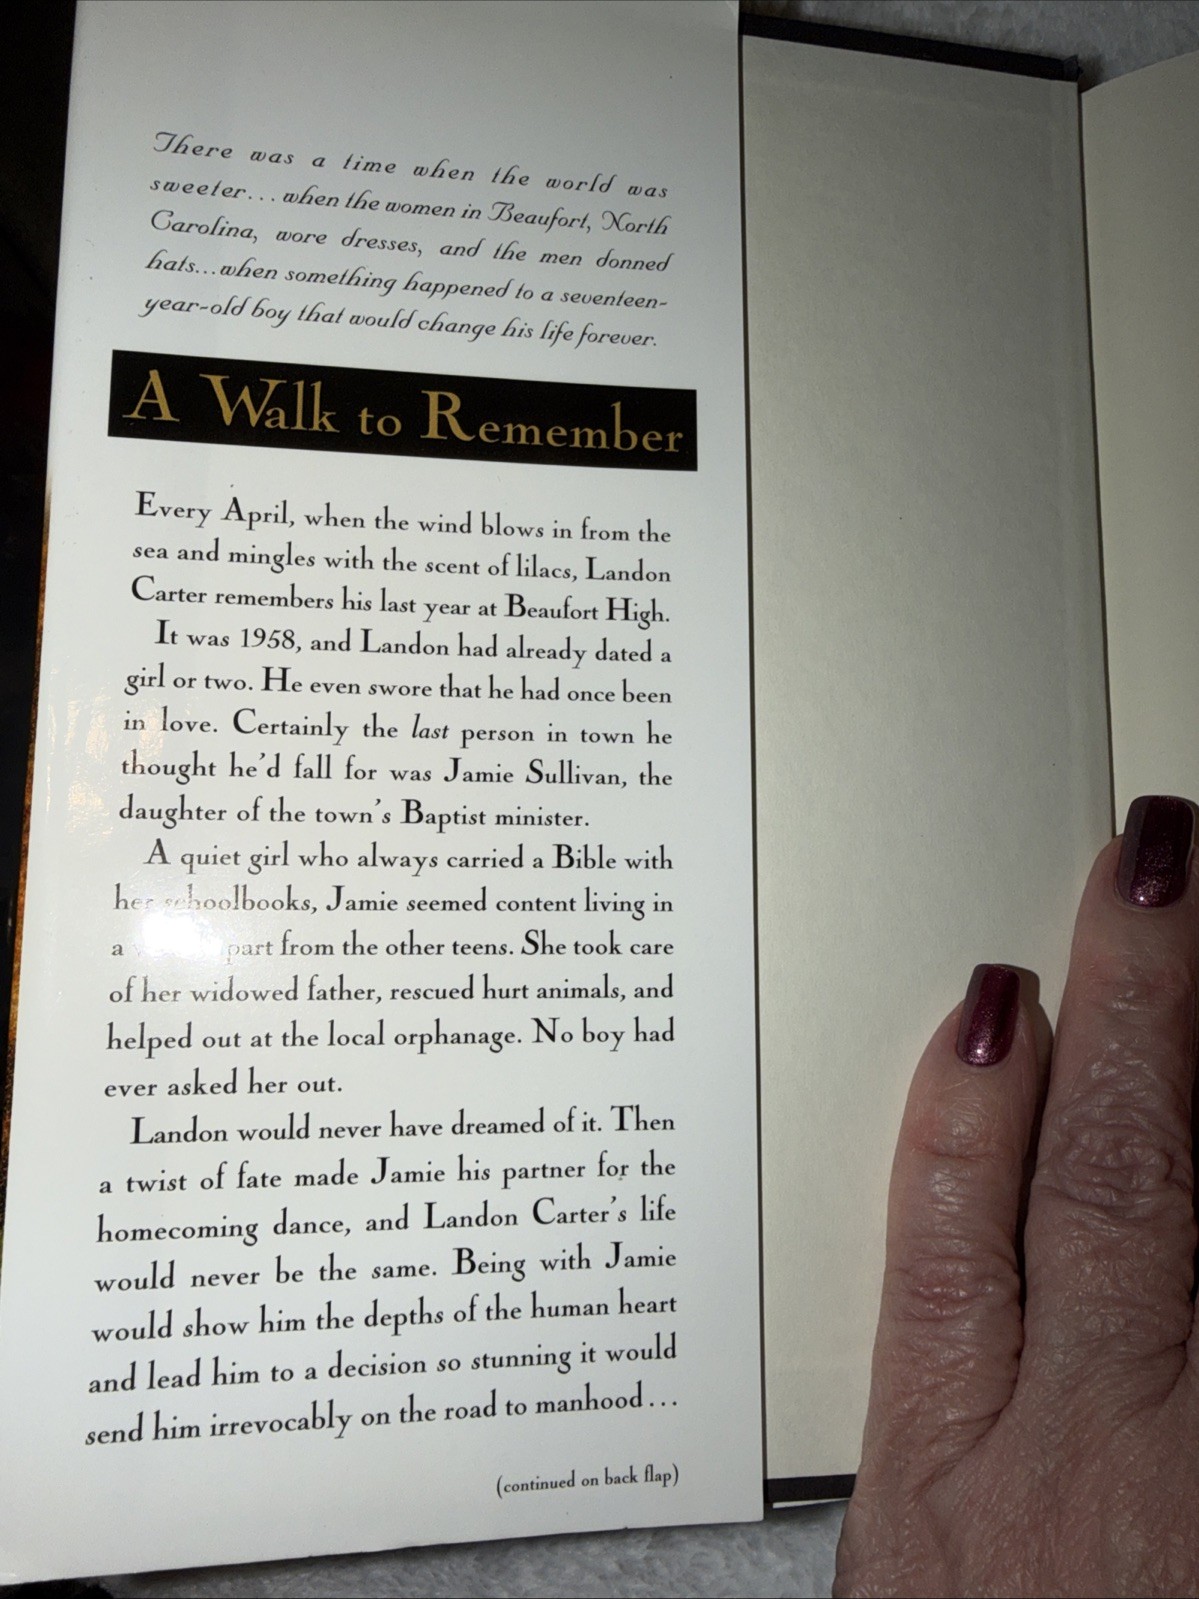 There was a time when the world was
sweeter... when the women in Beaufort, North
Carolina, wore dresses, and the men donned
hats...when something happened to a seventeen-
year-old boy that would change his life forever.
A Walk to Remember
Every April, when the wind blows in from the
sea and mingles with the scent of lilacs, Landon
Carter remembers his last year at Beaufort High.
It was 1958, and Landon had already dated a
girl or two. He even swore that he had once been
in love. Certainly the last person in town he
thought he'd fall for was Jamie Sullivan, the
daughter of the town's Baptist minister.
A quiet girl who always carried a Bible with
her schoolbooks, Jamie seemed content living in
a part from the other teens. She took care
of her widowed father, rescued hurt animals, and
helped out at the local orphanage. No boy had
ever asked her out.
Landon would never have dreamed of it. Then
a twist of fate made Jamie his partner for the
homecoming dance, and Landon Carter's life
would never be the same. Being with Jamie
would show him the depths of the human heart
and lead him to a decision so stunning it would
send him irrevocably on the road to manhood...
(continued on back flap)